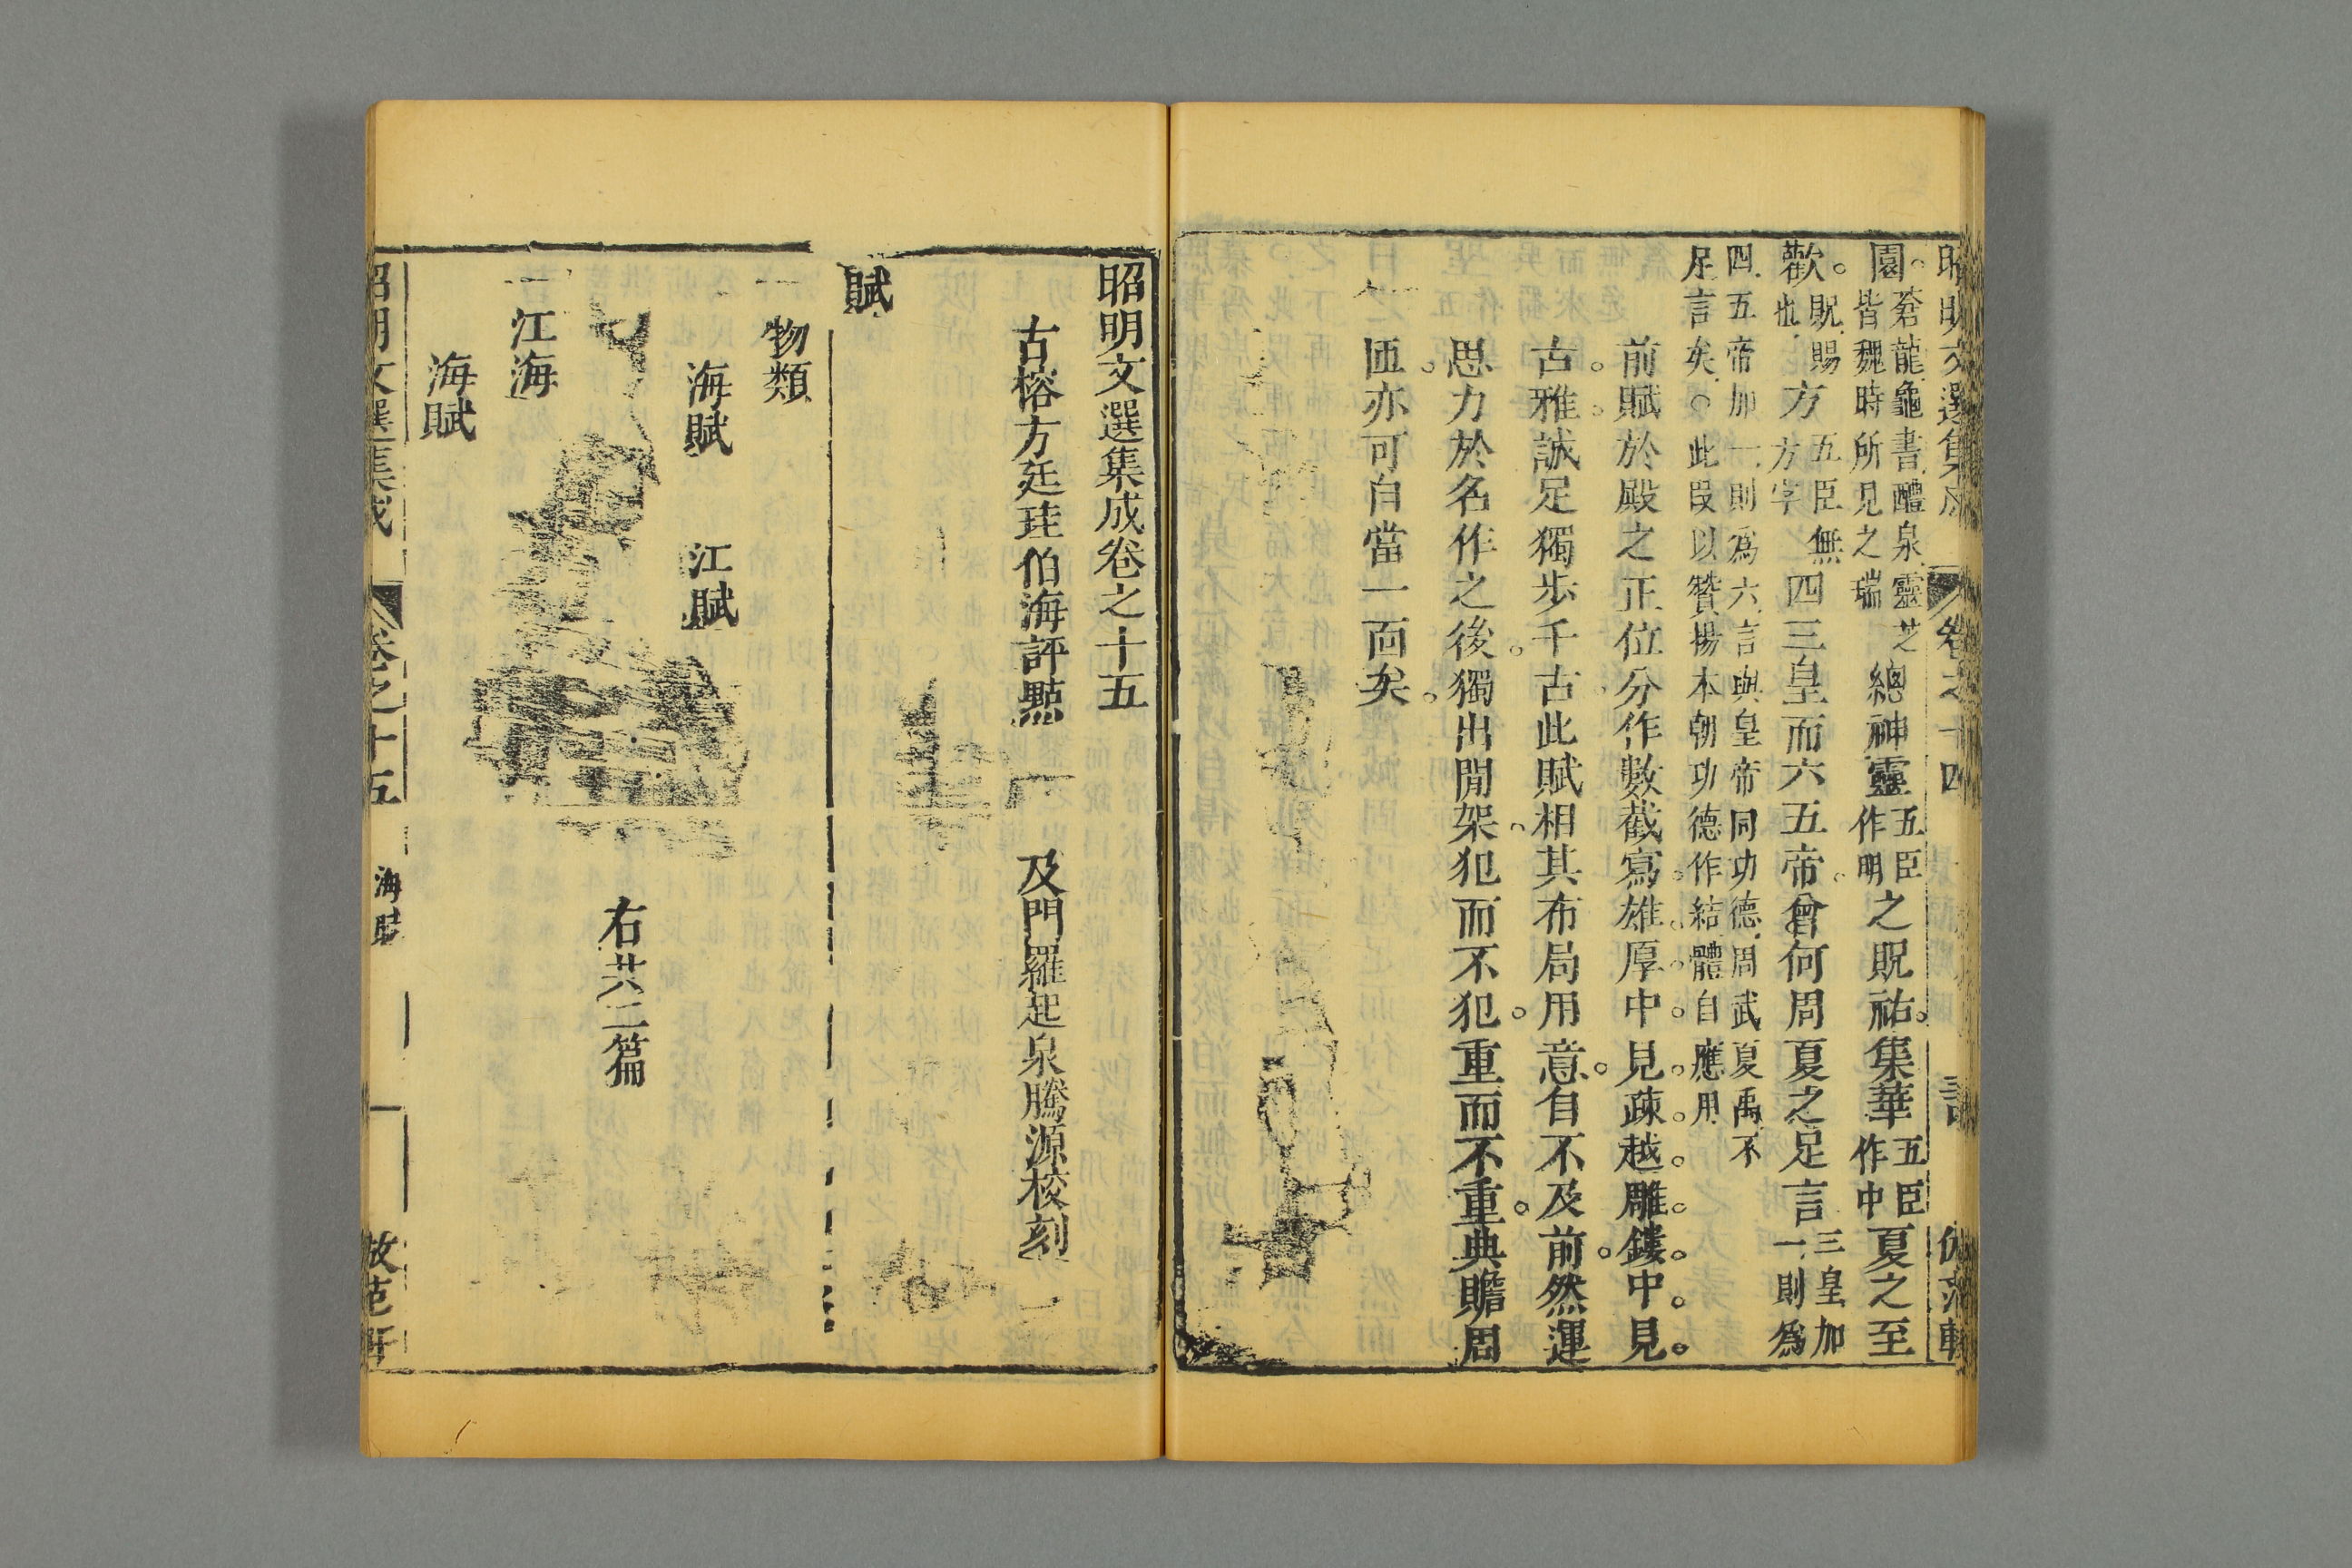 昭明文選集成　卷之十四　倣范軒
園。蒼龍龜書醴泉靈芝皆魏時所見之瑞總神靈五臣作明之貺祐。集華五臣作中夏之至
歡。貺賜也方五臣無方字四三皇而六五帝。曾何周夏之足言三皇加一則爲
四五帝加一則爲六言與皇帝同功德周武夏禹不
足言矣○此段以贊揚本朝功德作結體自應用
前賦於殿之正位分作數截寫。雄。厚。中。見。疎。越。雕。鏤。中。見。
古。雅。誠足獨步千古此賦相其布局用意。自不及前。然運
思力於名作之後。獨出閒架、犯而不犯。重而不重。典贍周
匝。亦可自當一面矣。
昭明文選集成卷之十五
古榕方廷珪伯海評點　及門羅起泉騰源校刻
賦
物類
海賦　江賦
右共三篇
江海
海賦
昭明文選集成　卷之十五　海賦　一　倣范軒